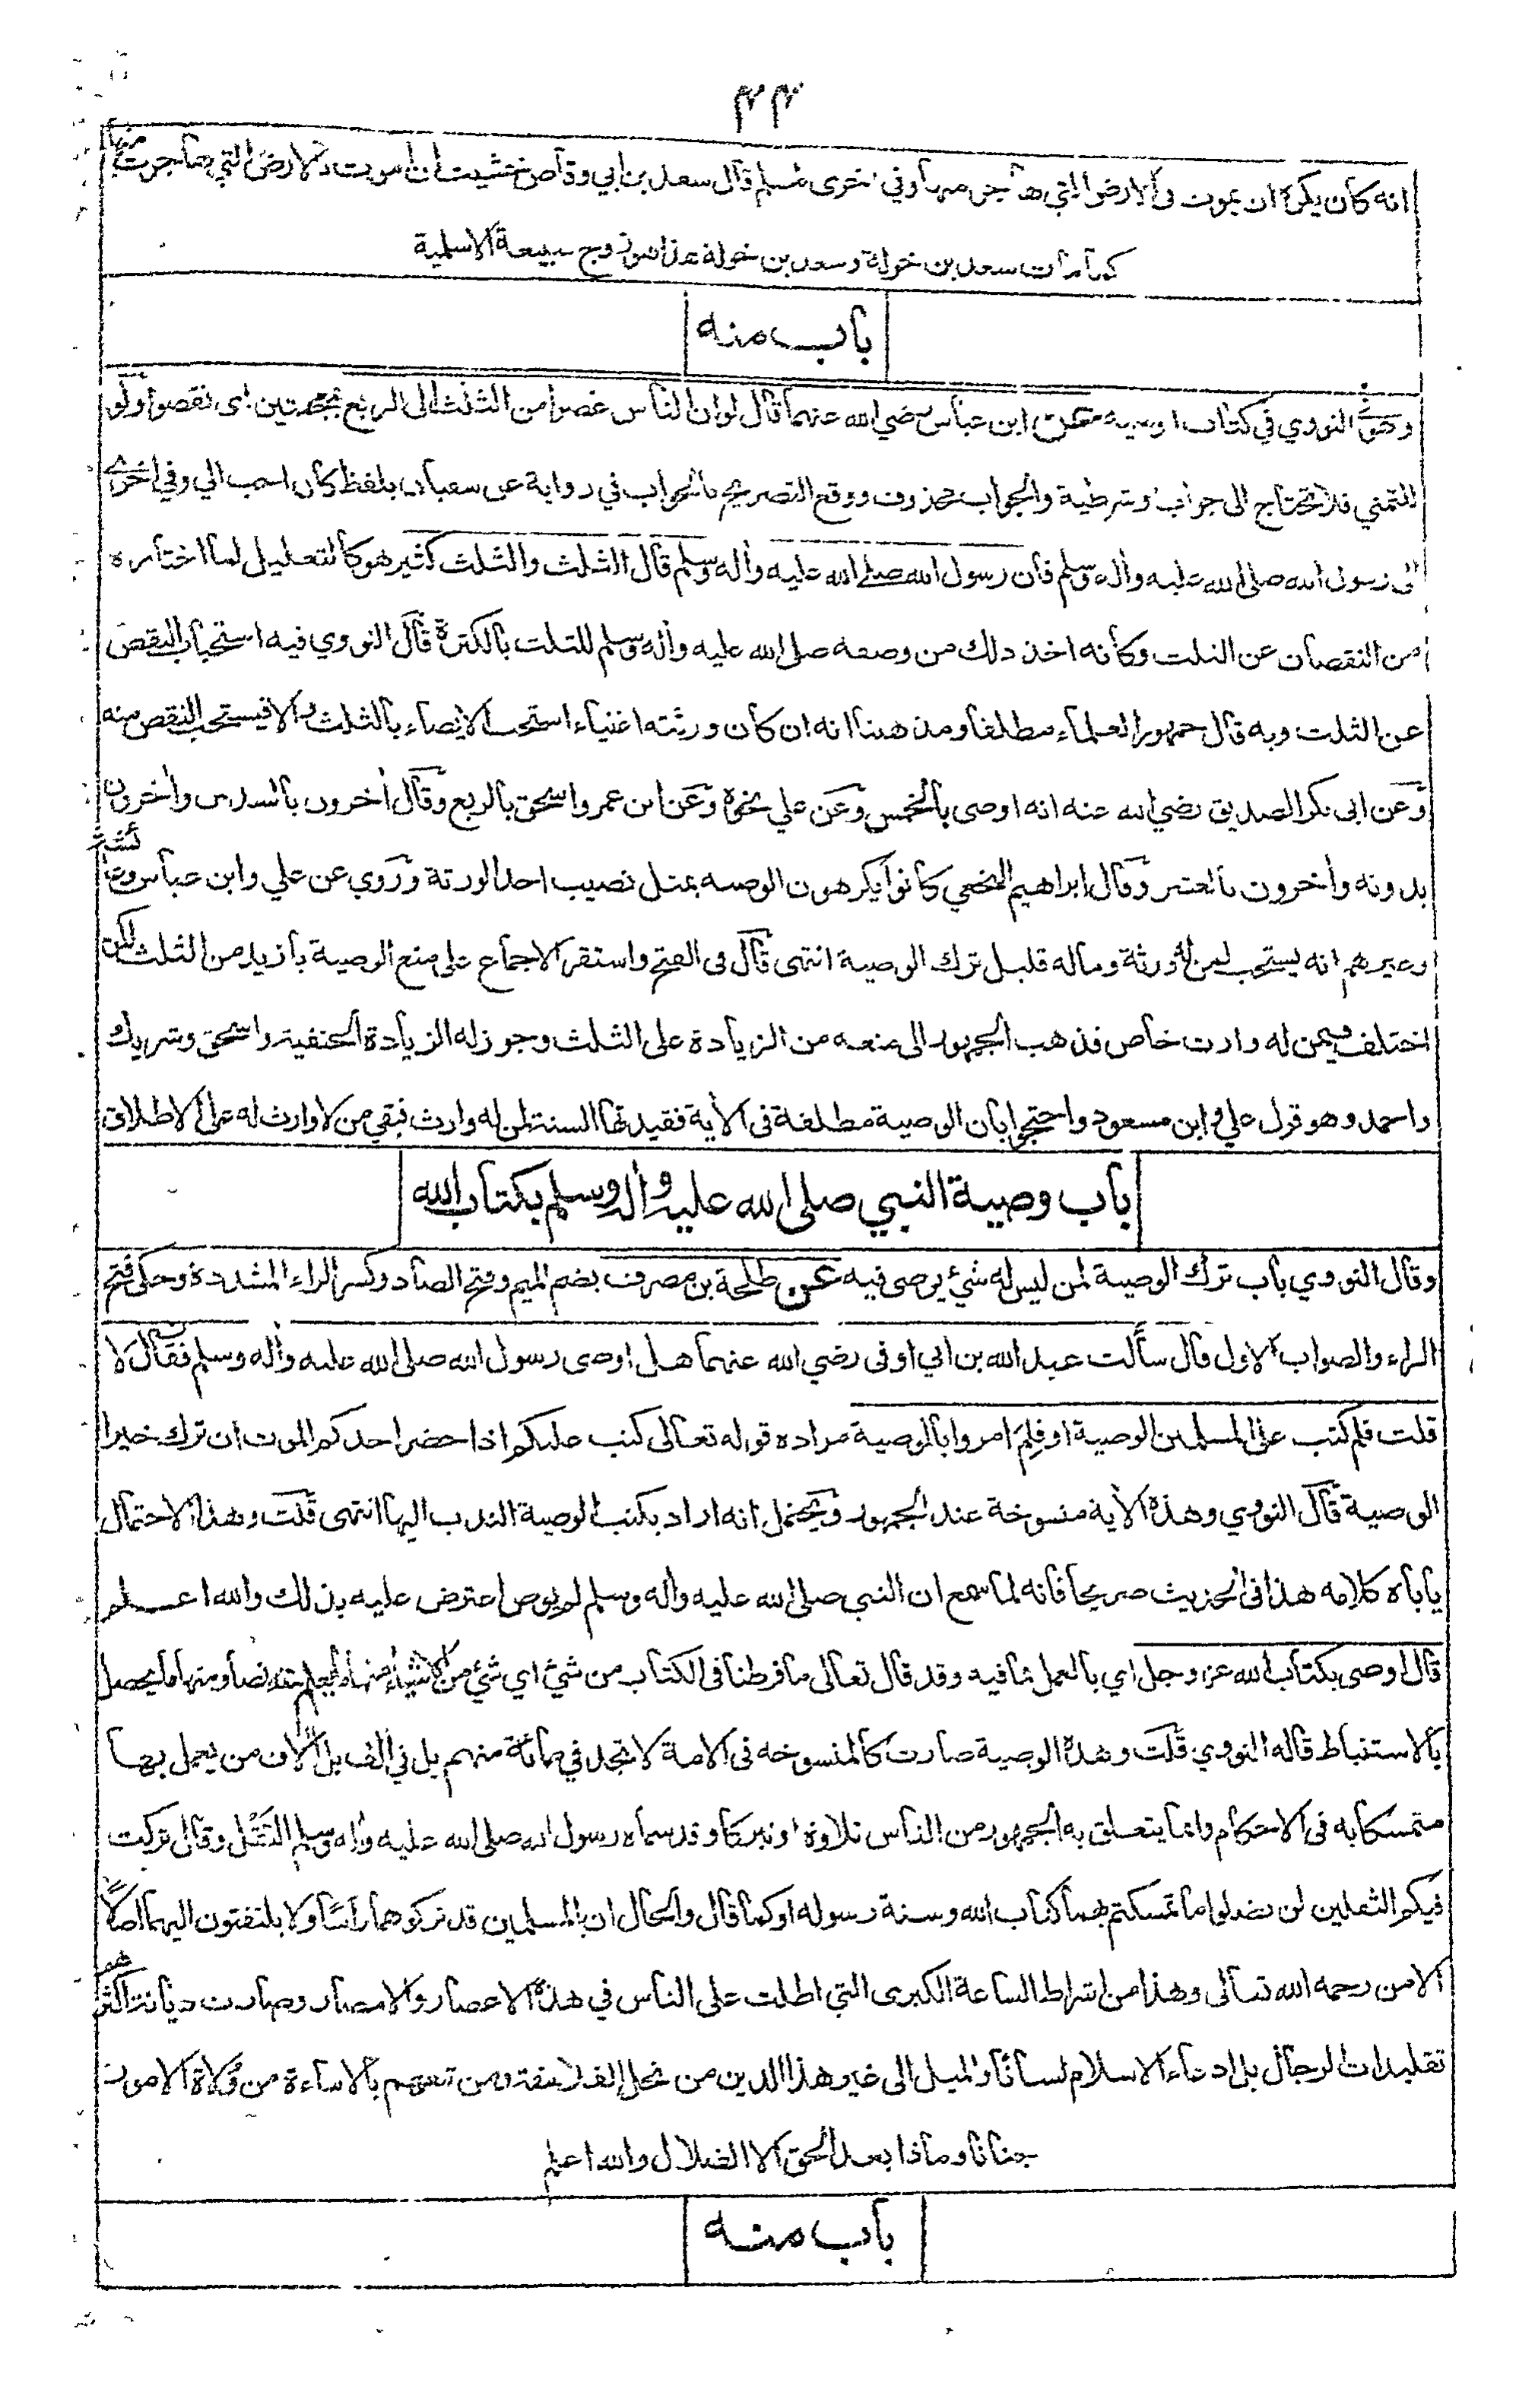 ٤٤
انه كان يكره ان يموت فى الارض التي هاجر منها وفي اخرى لمسلم قال سعد بن ابي وقاص خشيت ان اموت بالارض التي هاجرت منها
كما مات سعد بن خولة وسعد بن خولة هذا هو زوج سبيعة الاسلمية
باب منه
وهو في النووي في كتاب الوصية عن ابن عباس رضي الله عنهما قال لو ان الناس غضوا من الثلث الى الربع بمعجمتين اى نقصوا ولو
للتمني فلا تحتاج الى جواب او شرطية والجواب محذوف ووقع التصريح بالجواب في رواية عن سفيان بلفظ كان احب الي وفي اخرى
الى رسول الله صلى الله عليه واله وسلم فان رسول الله صلى الله عليه واله وسلم قال الثلث والثلث كثير هو كالتعليل لما اختاره
من النقصان عن الثلث وكأنه اخذ ذلك من وصفه صلى الله عليه واله وسلم للثلث بالكثرة قال النووي فيه استحباب النقص
عن الثلث وبه قال جمهور العلماء مطلقا ومذهبنا انه ان كان ورثته اغنياء استحب الايصاء بالثلث والا فيستحب النقص منه
وعن ابى بكر الصديق رضي الله عنه انه اوصى بالخمس وعن علي نحوه وعن ابن عمر واسحق بالربع وقال اخرون بالسدس واخرون
بدونه واخرون بالعشر وقال ابراهيم النخعي كانوا يكرهون الوصية بمثل نصيب احد الورثة وروي عن علي وابن عباس وعائشة
وغيرهم انه يستحب لمن له ورثة وماله قليل ترك الوصية انتهى قال فى الفتح واستقر الاجماع على منع الوصية بازيد من الثلث لكن
اختلف فيمن له وارث خاص فذهب الجمهور الى منعه من الزيادة على الثلث وجوز له الزيادة الحنفية واسحق وشريك
واحمد وهو قول علي وابن مسعود واحتجوا بان الوصية مطلقة فى الآية فقيدتها السنة لمن له وارث فبقي من لا وارث له على الاطلاق
باب وصية النبي صلى الله عليه واله وسلم بكتاب الله
وقال النووي باب ترك الوصية لمن ليس له شئ يوصى فيه عن طلحة بن مصرف بضم الميم وفتح الصاد وكسر الراء المشددة وحكي فتح
الراء والصواب الاول قال سألت عبد الله بن ابي اوفى رضي الله عنهما هل اوصى رسول الله صلى الله عليه واله وسلم فقال لا
قلت فلم كتب على المسلمين الوصية او فلم امروا بالوصية مراده قوله تعالى كتب عليكم اذا حضر احدكم الموت ان ترك خيرا
الوصية قال النووي وهذه الآية منسوخة عند الجمهور ويحتمل انه اراد بكتب الوصية الندب اليها انتهى قلت وهذا الاحتمال
يأباه كلامه هذا فى الحديث صريحا فانه لما سمع ان النبي صلى الله عليه واله وسلم لم يوص اعترض عليه بذلك والله اعلم
قال اوصى بكتاب الله عز وجل اي بالعمل بما فيه وقد قال تعالى ما فرطنا فى الكتاب من شئ اي شئ من الاشياء منها ما يعلم منه نصا ومنها ما يحصل
بالاستنباط قاله النووي قلت وهذه الوصية صارت كالمنسوخه فى الامة لا تجد في مائة منهم بل في الف بل الآن من يعمل بها
متمسكا به فى الاحكام وانما يتعلق به الجمهور من الناس تلاوة او تبركا وقد سماه رسول الله صلى الله عليه واله وسلم الثقل وقال تركت
فيكم الثقلين لن تضلوا ما تمسكتم بهما كتاب الله وسنة رسوله او كما قال والحال ان المسلمين قد تركوهما رأسا ولا يلتفتون اليهما اصلا
الا من رحمه الله تعالى وهذا من اشراط الساعة الكبرى التي اطلت على الناس في هذه الاعصار والامصار وصارت ديانة اكثرهم
تقليدات الرجال بل ادعاء الاسلام لسانا والميل الى غير هذا الدين من نحل الفلاسفة ومن تسهم بالاساءة من ولاة الامور
جنانا وماذا بعد الحق الا الضلال والله اعلم
باب منه